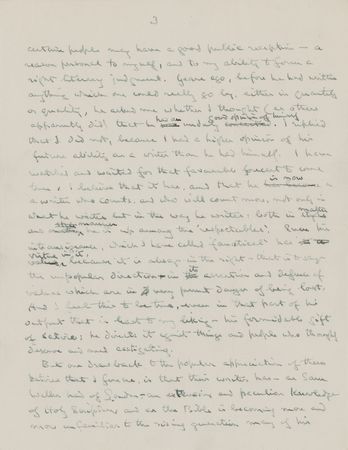 3
certain people may have a good public reception — a
reason personal to myself, and to my ability to form a
right literary judgment. Years ago, before he had written
anything which one could really go by, either in quantity
or quality, he asked me whether I thought (as others
apparently did) that he had an unduly good opinion of himself. I replied
that I did not, because I had a higher opinion of his
future ability as a writer than he had himself. I have
watched and waited for that favourable forecast to come
true; I believe that it has, and that he is now
a writer who counts, and who will count more, not only in
what he writes but in the way he writes: both in matter
and manner, he is among the 'respectables'. Even his
intransigence, which I have called fanatical has
virtue in it, because it is always in the right — that is to say
the unpopular direction — in its assertion and defence of
values which are in very great danger of being lost.
And I feel this to be true, even in that part of his
output that is least to my liking — his formidable gift
of satire: he directs it against things and people who thoroughly
deserve and need castigating.
But one drawback to the popular appreciation of these
satires that I foresee, is that their writer has — as Sam
Weller had of London — an extensive and peculiar knowledge
of Holy Scripture and as the Bible is becoming more and
more unfamiliar to the rising generation many of his